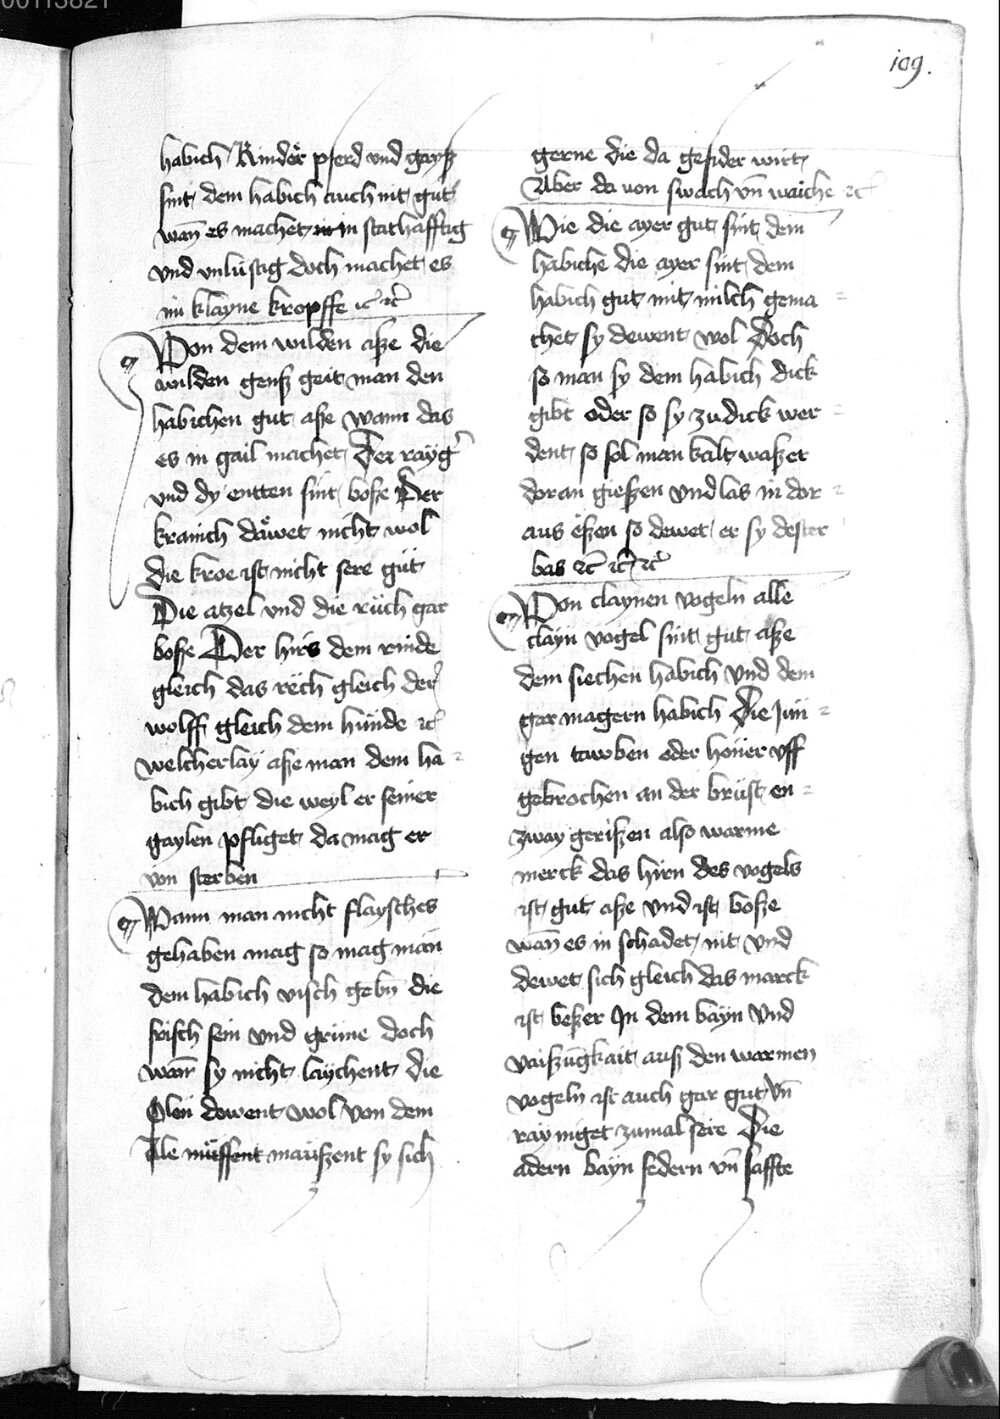 109.
habich Kinder pferd und gayß
sint dem habich auch nit gut
wan̄ es machet in stathafftig
und unlüstig doch machet es
im klayne kropffe ⁊c ⁊c
Von dem wilden aße die
wilden genß geit man den
habichen gut aße wann das
es in gail machet Der rayg̉
und dy entten sint boße Der
kranich däwet nicht wol
die kroe ist nicht sere gůt
Die atzel und die rüch gar
boße Der hirs dem rinde
gleich das rëch gleich der
wolff gleich dem hůnde ⁊c
welcherlay aße man dem ha⸗
bich gibt die weyl er seiner
gaylen pfliget da mag er
von sterben
Wann man nicht flaysches
gehaben mag so mag man
dem habich visch gebn die
frisch sein und grüne doch
wan̄ sy nicht laychent die
Olen dewent wol von dem
Ale maußzent sy sich
gerne die da gefider wirt
Aber da von swach vn̄ waiche ⁊c
Wie die ayer gut sint dem
habiche die ayer sint dem
habich gut mit milch gema⸗
chet sy dewent wol Doch
so man sy dem habich dick
gibt oder so sy zu dick wer⸗
dent so sol man kalt waßer
doran gießen und las in dor⸗
aus eßen so dewet er sy dester
bas ⁊c ⁊c ⁊c
Von claynen vogeln alle
clayn vogel sint gut aße
dem siechen habich und dem
gar magern habich Die Jun⸗
gen tawben oder honer uff
gebrochen an der brüst en⸗
zway gerißen also warme
merck das hirn des vogels
ist gut aße und ist boße
wan̄ es in schadet nit und
dewet sich gleich das marck
ist beßer In dem bayn und
vaißzugkait auß den warmen
vogeln ist auch gar gut vn̄
rayniget zumal sere Die
adern bayn federn vn̄ saffte